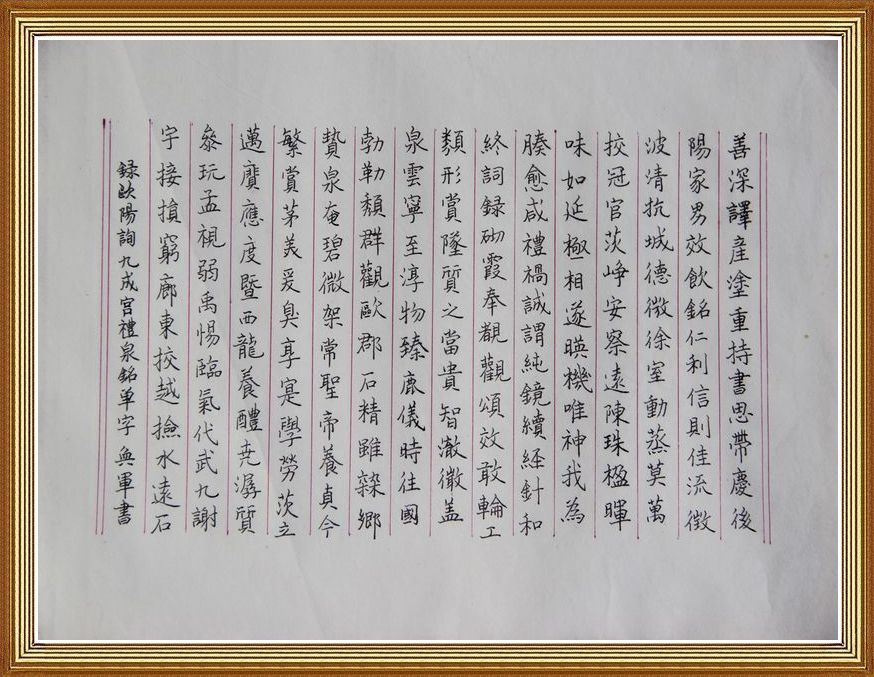 善深譯産塗重持書思帶慶後
陽家男效飲銘仁利信則佳流徴
波清抗城德微徐室動蒸莫萬
挍冠官茨崢安察遠陳珠楹暉
味如延極相遂暎機唯神我為
腠愈咸禮禍誠謂純鏡續經針和
終詞録砌霞奉觀觀頌效敢輪工
類形賞墜質之當貴智澈徹盖
泉雲寧至淳物臻鹿儀時往國
勃勒頽群觀歐郡石精雖雜鄉
贄泉奄碧微架常聖帝養貞今
繁賞茅美爰臭享寔學勞茨立
邁賡應度暨西龍養醴尭潺質
叅玩孟視弱禹惕臨氣代武九謝
宇接損窮廊東挍越撿水遠石
録欧陽詢九成宫禮泉銘单字 軍書